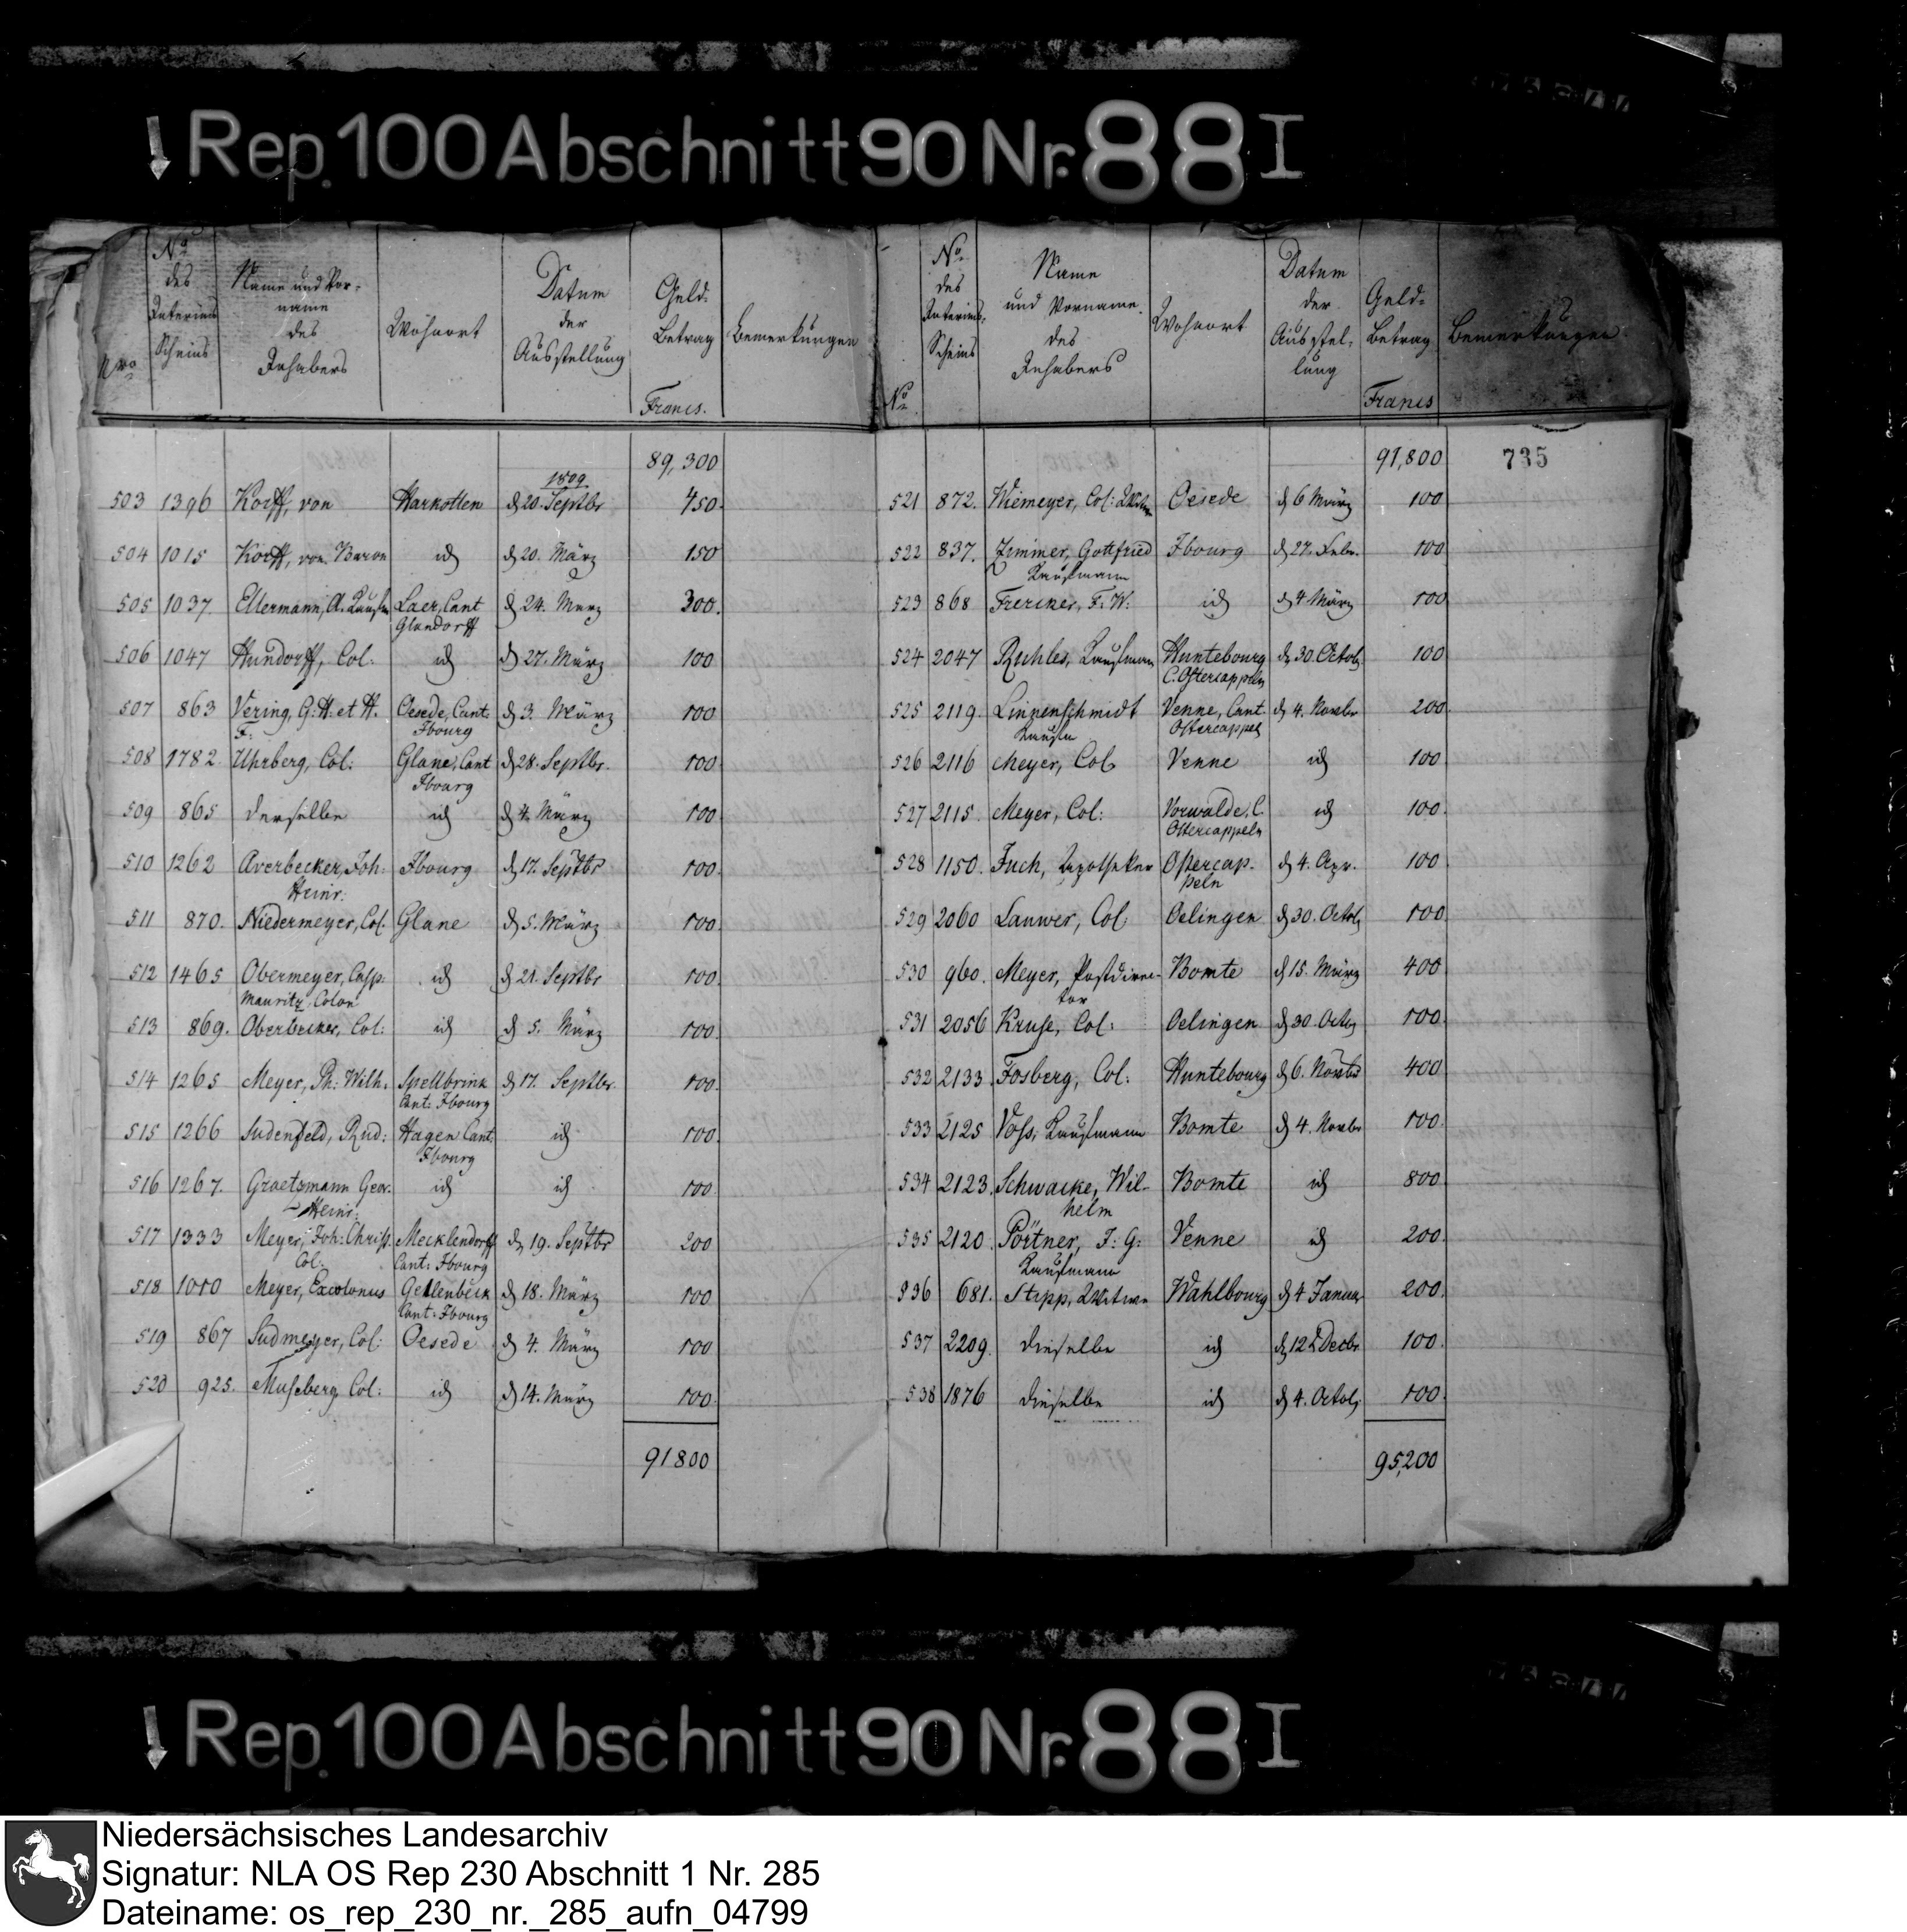 Rep. 100 Abschnitt 90 Nr. 88 I
No des Interims Scheins
Name und Vorname des Inhabers
Wohnort
Datum der Ausstellung
Geld-Betrag Francs.
Bemerkungen
89,300
1809
503 1396 Korff, von Harkotten d 20. Septbr 450.
504 1015 Korff, von Baron id d 20. März 150
505 1037 Ellermann, A. Laer, Cant Glandorff d 24. März 300.
506 1047 Hundorff, Col: id d 27. März 100
507 863 Vering, G: H: et H. F: Oesede, Cant: Ibourg d 3. März 100
508 1782 Uhrberg, Col: Glane, Cant Ibourg d 28. Septbr. 100
509 865 derselbe id d 4. März 100
510 1262 Averbecker, Joh: Heinr: Ibourg d 17. Septbr 100
511 870. Niedermeyer, Col. Glane d 5. März 100
512 1465 Obermeyer, Casp: Mauritz, Colon id d 21. Septbr 100
513 869. Oberbecker, Col: id d 5. März 100
514 1265 Meyer, Ph: Wilh. Spellbrink Cant: Ibourg d 17. Septbr. 100
515 1266 Sudenfeld, Rud: Hagen Cant. Ibourg id 100
516 1267. Graetsmann Geor. Heinr: id id 100
517 1333 Meyer, Joh: Christ. Col: Mecklendorff Cant: Ibourg d 19. Septbr 200
518 1010 Meyer, Excolonus Gellenbeck Cant: Ibourg d 18. März 100
519 867 Sudmeyer, Col: Oesede d 4. März 100
520 925. Museberg, Col: id d 14. März 100
91800
No des Interims-Scheins
Name und Vorname des Inhabers
Wohnort
Datum der Ausstellung
Geld-Betrag Francs
Bemerkungen
91,800
735
521 872. Wiemeyer, Col: Oesede d 6 März 100
522 837. Zimmer, Gottfried Kaufmann Ibourg d 27. Febr. 100
523 868 Frercker, F: W: id d 4 März 100
524 2047 Ruhles, Kaufmann Huntebourg C. Ostercappeln d 30. Octob. 100
525 2119. Linnenschmidt Kaufm Venne, Cant. Ostercappel d 4. Novbr 200
526 2116 Meyer, Col Venne id 100
527 2115. Meyer, Col: Vorwalde, C. Ostercappeln id 100.
528 1150. Fuch, Apotheker Ostercappeln d 4. Apr. 100
529 2060 Lanwer, Col: Oelingen d 30. Octob 100
530 960. Meyer, Postdirector Bomte d 15. März 400
531 2056 Kruse, Col: Oelingen d 30. Octob 100
532 2133 Fosberg, Col: Huntebourg d 6. Novbr 400
533 2125 Voss, Kaufmann Bomte d 4. Novbr 100
534 2123. Schwacke, Wilhelm Bomte id 800
535 2120. Pörtner, F: G: Kaufmann Venne id 200.
536 681. Stipp, Witwe Wahlbourg d 4 Januar 200.
537 2209. dieselbe id d 12 Decbr 100.
538 1876 dieselbe id d 4. Octob. 100.
95,200
Rep. 100 Abschnitt 90 Nr. 88 I
Niedersächsisches Landesarchiv
Signatur: NLA OS Rep 230 Abschnitt 1 Nr. 285
Dateiname: os_rep_230_nr._285_aufn_04799